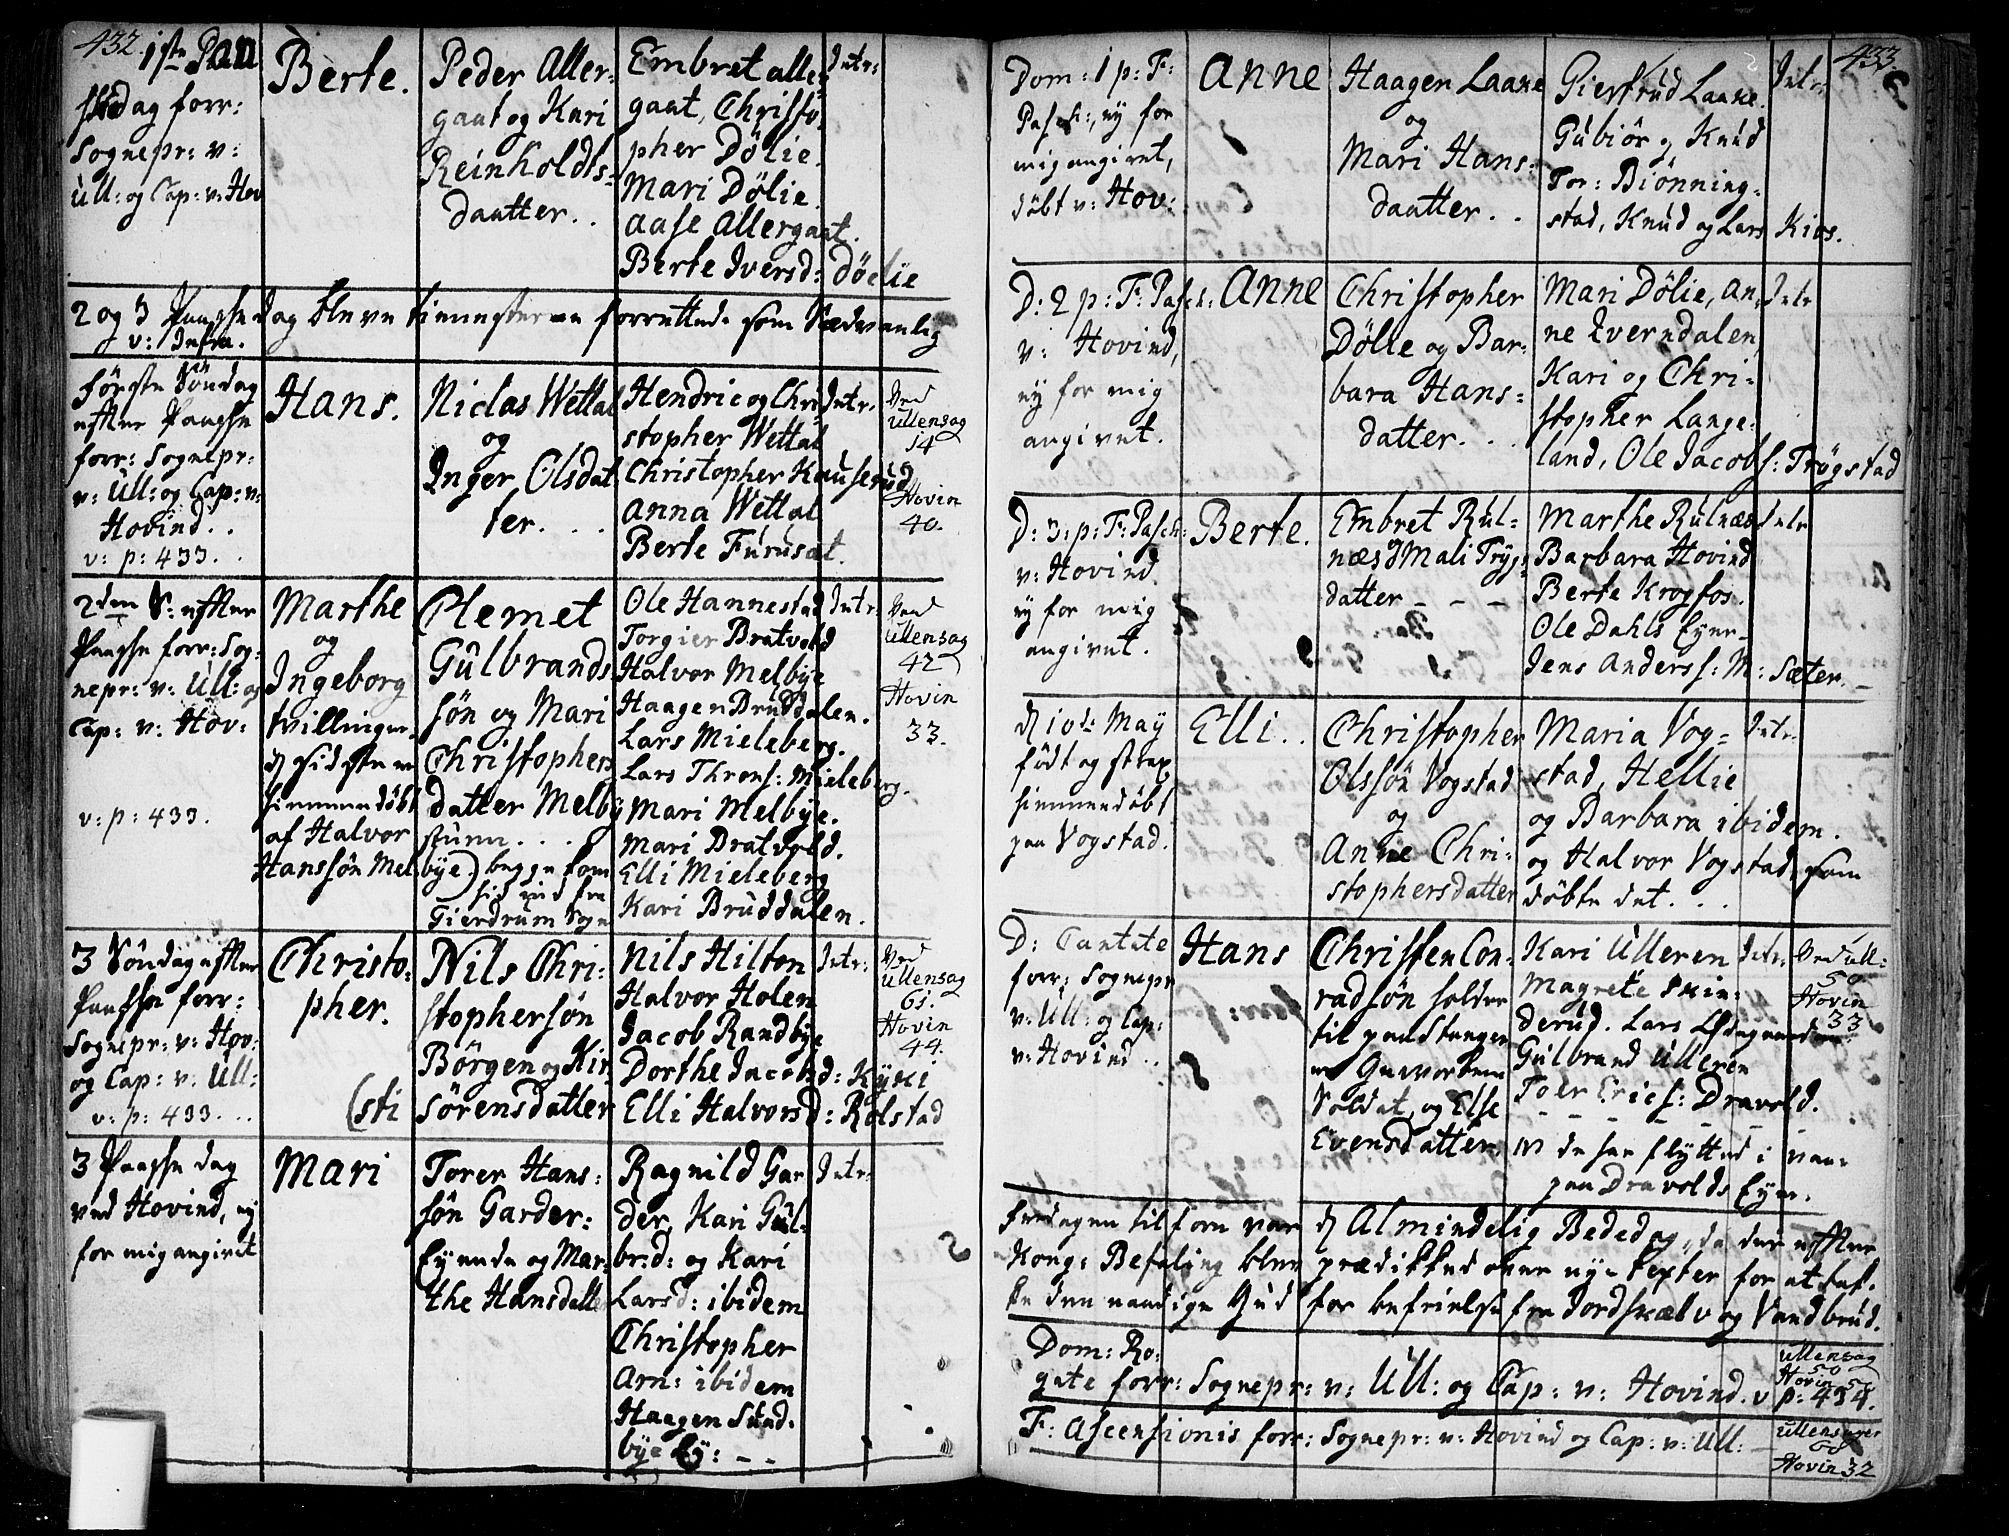 432.
1ste Paa
skedag forr:
Sognepr: v:
Ull: og Cap: v: Hov
Berte.
Peder Aller-
gaat og Kari
Reinholdts-
daatter. .
Embret aller
gaat, Christo-
pher Dölie.
Mari Dölie.
Aase Allergaat.
Berte Iversd: Döelie
Intr:
2 og 3 Paaske dag bleve tienesterne forrettede som Sædvanlig
v: Infra.
Förste Söndag
efter Paaske
forr: Sognepr:
v: Ull: og Cap: v:
Hovind. .
v: p: 433. .
Hans.
Niclas Wettal
og
Inger Olsdat
ter. . .
Hendric og Chri
stopher Wettal
Christopher Knuserud
Anna Wettal
Berte Furusat.
Intr.
Ved
Ullensag
14
Hovin
40.
2den S: efter
Paaske forr: Sog-
nepr: v: Ull: og
Cap: v: Hov:
v: p: 433.
Marthe
og
Ingeborg
tvillinger.
d sidste er
hiemmedöbt
af Halvor
Hanssön Mel
bye) begge kom
hid ind fra
Gierdrum Sogn
Clemet
Gulbrands
sön og Mari
Christophers
datter Melby
stuen. . . .
Ole Hannestad
Torgier Bratvold
Halvor Melbye
Haagen Bruddalen.
Lars Mieleberg.
Lars Throns: Mieleberg.
Mari Melbye.
Mari Bratvold.
Elli Mieleberg
Kari Bruddalen.
Intr:
Ved
Ullensag
42
Hovin
33.
3 Söndag efter
Paaske forr:
Sognepr: v: Hov:
og Cap: v: Ull:
v: p: 433. . .
Christo-
pher.
Nils Chri-
stophersön
Börgen og Kir
(sti Sörensdatter
Nils Hilton
Halvor Holen
Jacob Randbye
Dorthe Jacobsd: Kyxi
Elli Halvorsd: Rolstad
Intr:
Ved
Ullensag
61.
Hovin
44.
3 Paaske dag
ved Hovind, ey
for mig angivet
Mari
Torer Hans-
sön Garder-
Eyende og Mar-
the Hansdatter
Ragnild Gar
der, Kari Gul-
br:d: og Kari
Larsd: ibidem
Christopher
Arn: ibidem
Haagen Stad-
bye Ey: - -
Intr:
433.
Dom: 1 p: F:
Pasch:, ey for
mig angivet,
döbt v: Hov:
Anne
Haagen Laane
og
Mari Hans-
daatter. .
Giertrud Laane.
Gubiör og Knud
Tor: Biönning-
stad, Knud og Lars Kios.
Intr:
D: 2 p: F: Pasch:
v: Hovind,
ey for mig
angivet.
Anne
Christopher
Dölie og Bar-
bara Hans-
datter. . .
Mari Dölie, An-
ne Lverndalen,
Kari og Chri-
stopher Lange-
land, Ole Jacobs: Trögstad
Intr
D: 3: p: F: Pasch:
v: Hovind.
ey for mig
angivet.
Berte.
Embret Rul-
næs og Mali Tryg-
datter - - -
Marthe Rulnæs
Barbara Hovind
Berte Krogfos.
Ole Dahls Eyer-
Jens Anderss: M: Sæter. -
Intr
d 10de May
födt og strax
hiemmedöbt
paa Vogstad.
Elli. .
Christopher
Olssön Vogstad
og
Anne Chri-
stophersdatter
Maria Vog-
stad, Hellie
og Barbara ibidem.
og Halvor Vogstad, som
döbte det. . .
Intr.
D: Cantate
forr: Sognepr
v: Ull: og Cap:
v: Hovind. .
Hans
Christen Con-
radsön
til paa Stangen
Soldat, og Else
Evensdatter
Kari Ulleren
Magrete Skin-
derud. Lars
Gulbrand Ulleren
Toer Erics: Dravold.
N de har flytted i
paa Dravolds Eyer.
Intr:
Ved Ull:
50
Hovin
33
Fredagen til forn var d Almindelig Bededag, da der efter
Kong: Befaling blev prædikked over nye texter for at tak-
ke den naadige Gud for befrielse fra Jordskælv og Vandbrud.
Dom: Ro-
gate forr: Sognepr: v: Ull: og Cap: v: Hovind. v p: 434.
Ullensag
50
Hovin
F: Ascensionis forr: Sognepr: v: Hovind og Cap: v: Ull: -
Hovin 32